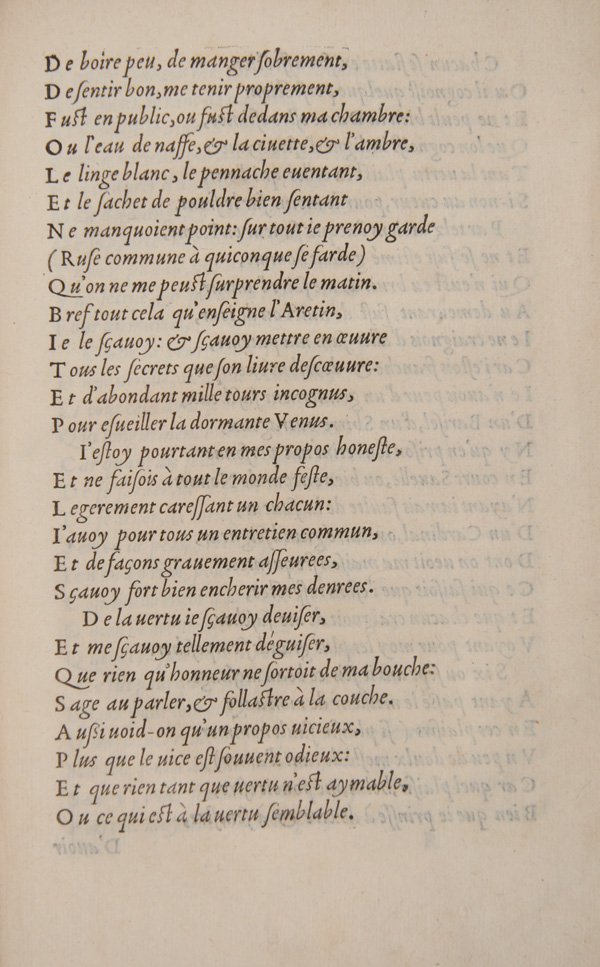 De boire peu, de manger ſobrement,
De ſentir bon, me tenir proprement,
Fuſt en public, ou fuſt dedans ma chambre:
Ou l'eau de naffe, & la ciuette, & l'ambre,
Le linge blanc, le pennache euentant,
Et le ſachet de pouldre bien ſentant
Ne manquoient point: ſur tout ie prenoy garde
(Ruſe commune à quiconque ſe farde)
Qu'on ne me peuſt ſurprendre le matin.
Bref tout cela qu'enſeigne l'Aretin,
Ie le ſçauoy: & ſçauoy mettre en œuure
Tous les ſecrets que ſon liure deſcœuure:
Et d'abondant mille tours incognus,
Pour eſueiller la dormante Venus.
I'eſtoy pourtant en mes propos honeſte,
Et ne faiſois à tout le monde feſte,
Legerement careſſant un chacun:
I'auoy pour tous un entretien commun,
Et de façons grauement aſſeurees,
Sçauoy fort bien encherir mes denrees.
De la uertu ie ſçauoy deuiſer,
Et me ſçauoy tellement déguiſer,
Que rien qu'honneur ne ſortoit de ma bouche:
Sage au parler, & follaſtre à la couche.
Außi uoid-on qu'un propos uicieux,
Plus que le uice eſt ſouuent odieux:
Et que rien tant que uertu n'eſt aymable,
Ou ce qui eſt à la uertu ſemblable.